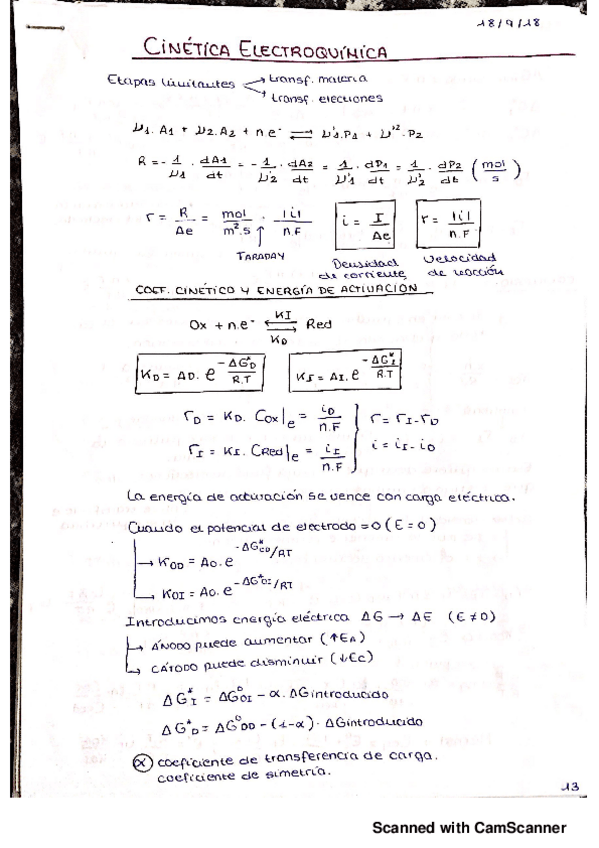 18/9/18
CINÉTICA ELECTROQUÍMICA
Etapas limitantes → transf. materia
→ transf. electrones
ν1.A1 + ν2.A2 + n e⁻ ⇌ ν'1.P1 + ν'2.P2
R = - 1/ν1 · dA1/dt = - 1/ν2 · dA2/dt = 1/ν'1 · dP1/dt = 1/ν'2 · dP2/dt (mol/s)
r = R/Ae = mol/m².s · |i|/n.F  i = I/Ae  r = |i|/n.F
FARADAY Densidad de corriente Velocidad de reacción
COEF. CINÉTICO Y ENERGÍA DE ACTIVACIÓN
Ox + n.e⁻ ⇌ Red
KI
KD
KD = AD. e^(-ΔG*D/R.T)  KI = AI. e^(-ΔG*I/R.T)
rD = KD. Cox|e = iD/n.F  r = rI - rD
rI = KI. CRed|e = iI/n.F  i = iI - iD
La energía de activación se vence con carga eléctrica.
Cuando el potencial de electrodo = 0 (E = 0)
→ KOD = A0. e^(-ΔG*OD/RT)
→ KOI = A0. e^(-ΔG*OI/RT)
Introducimos energía eléctrica ΔG → ΔE (E ≠ 0)
→ ÁNODO puede aumentar (↑EA)
→ CÁTODO puede disminuir (↓EC)
ΔG*I = ΔG°OI - α. ΔG introducido
ΔG*D = ΔG°OD - (1-α). ΔG introducido
α coeficiente de transferencia de carga.
coeficiente de simetría.
13
Scanned with CamScanner